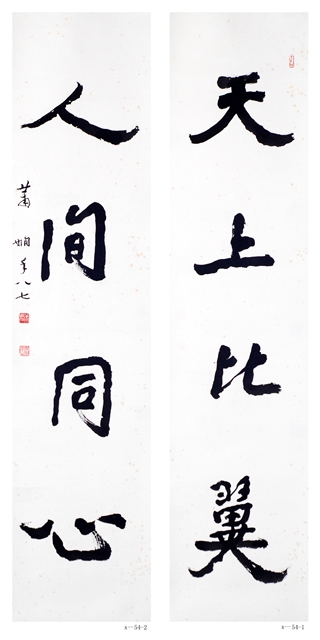 天上比翼
人间同心
萧娴年八七
x—54-1
x—54-2